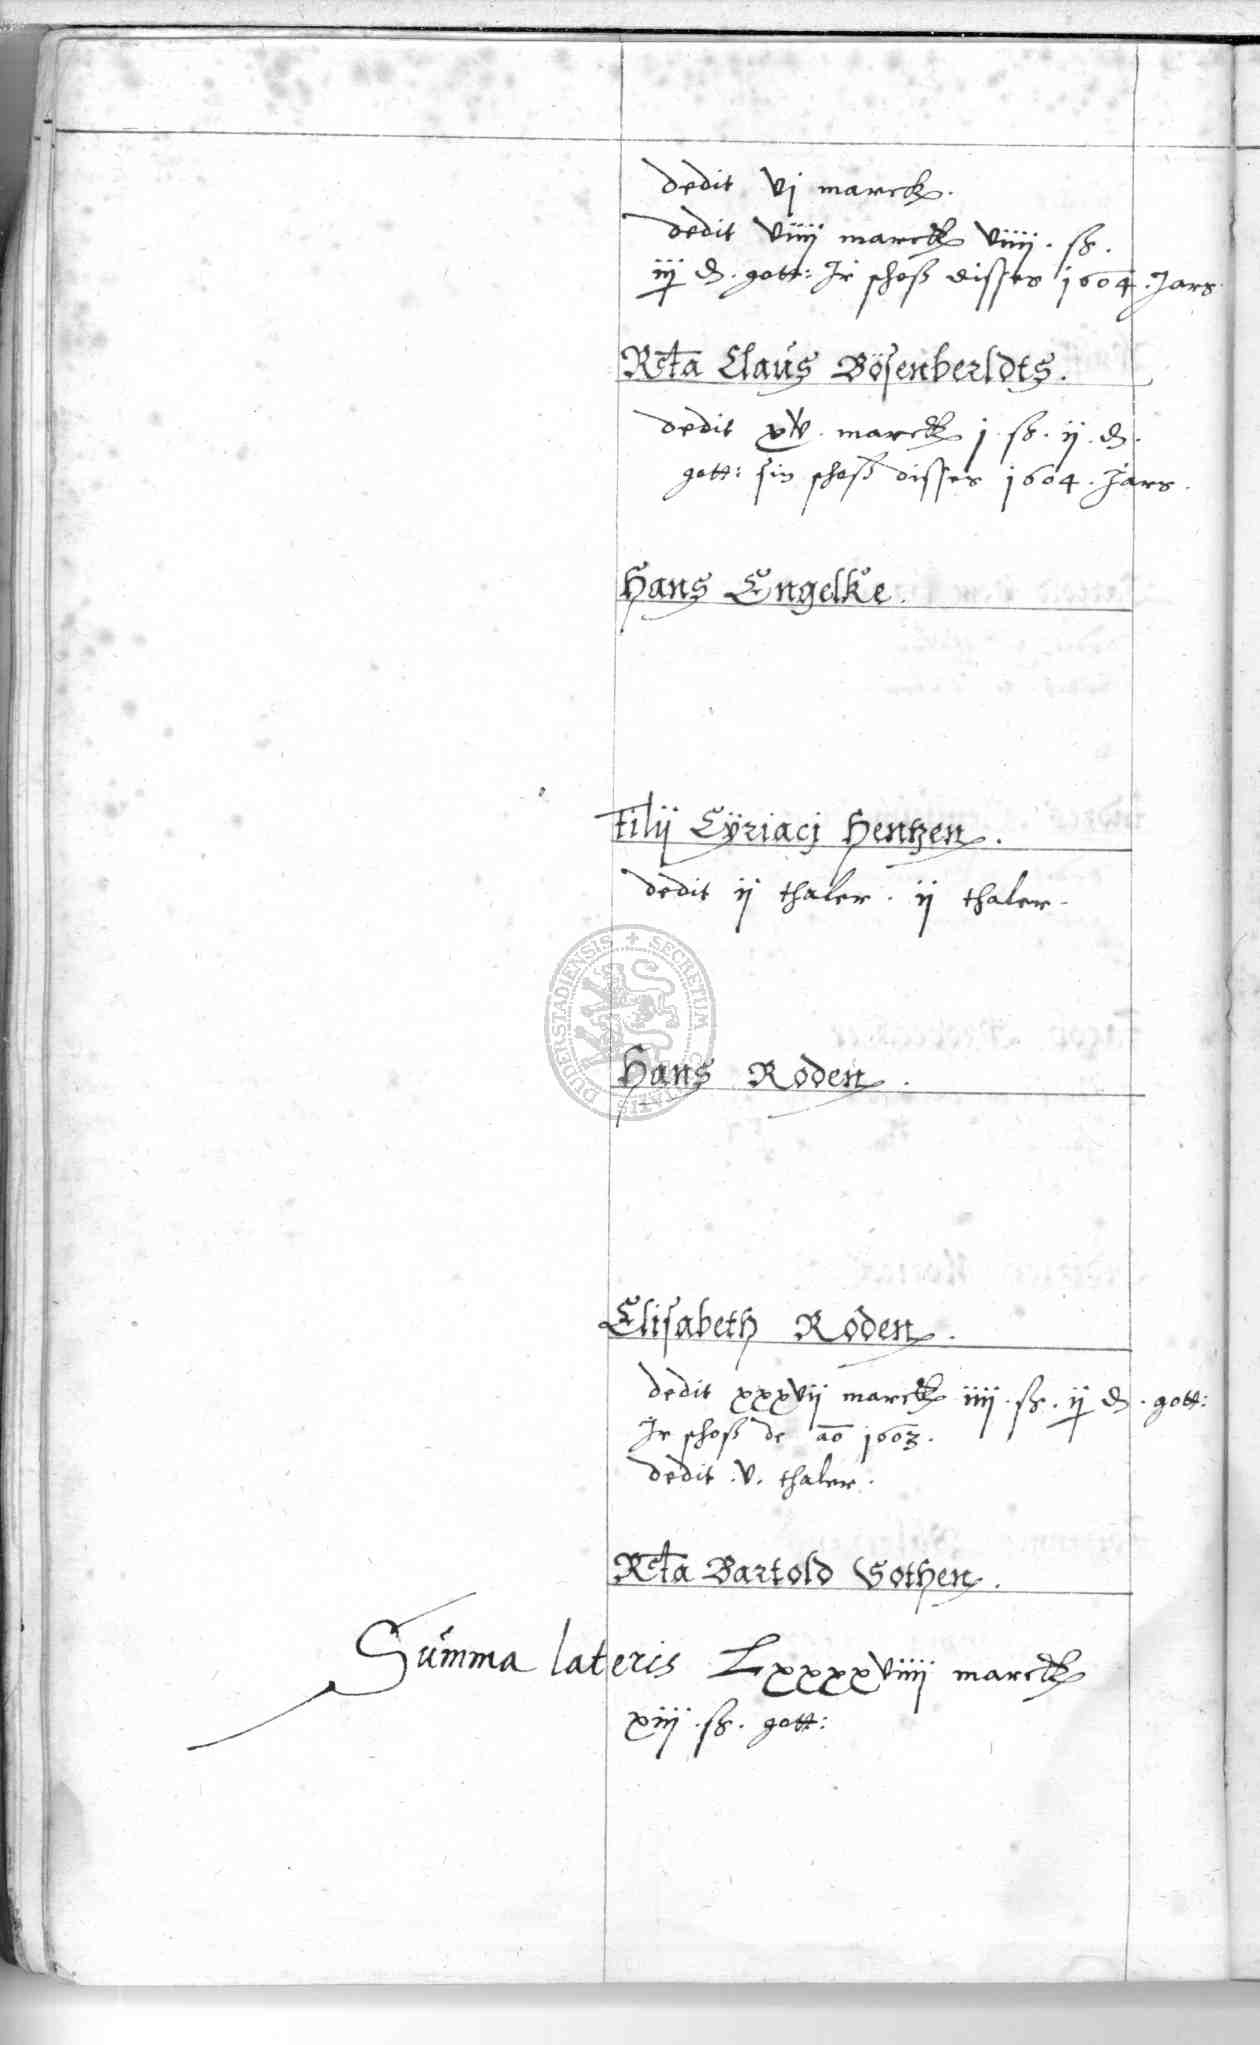 dedit vj marck.
dedit viiij marck viiij. ß.
iij ₰. gott: Jr schoß disses 1604. Jars
Rcta Claus Bösenberldts.
dedit xv. marck j. ß. ij. ₰.
gott: sin schoß disses 1604. Jars.
Hans Engelke.
Filij Cÿriacj Hentzen.
dedit ij thaler. ij thaler.
DUDERSTADIENSIS + SECRETUM CIVITATIS
Hans Roden.
Elisabeth Roden.
dedit xxxvij marck iiij. ß. ij ₰. gott:
Jr schoß de ao 1603.
dedit .v. thaler.
Rcta Bartold Gothen.
Summa lateris Lxxxxviiij marck
xiij. ß. gott: